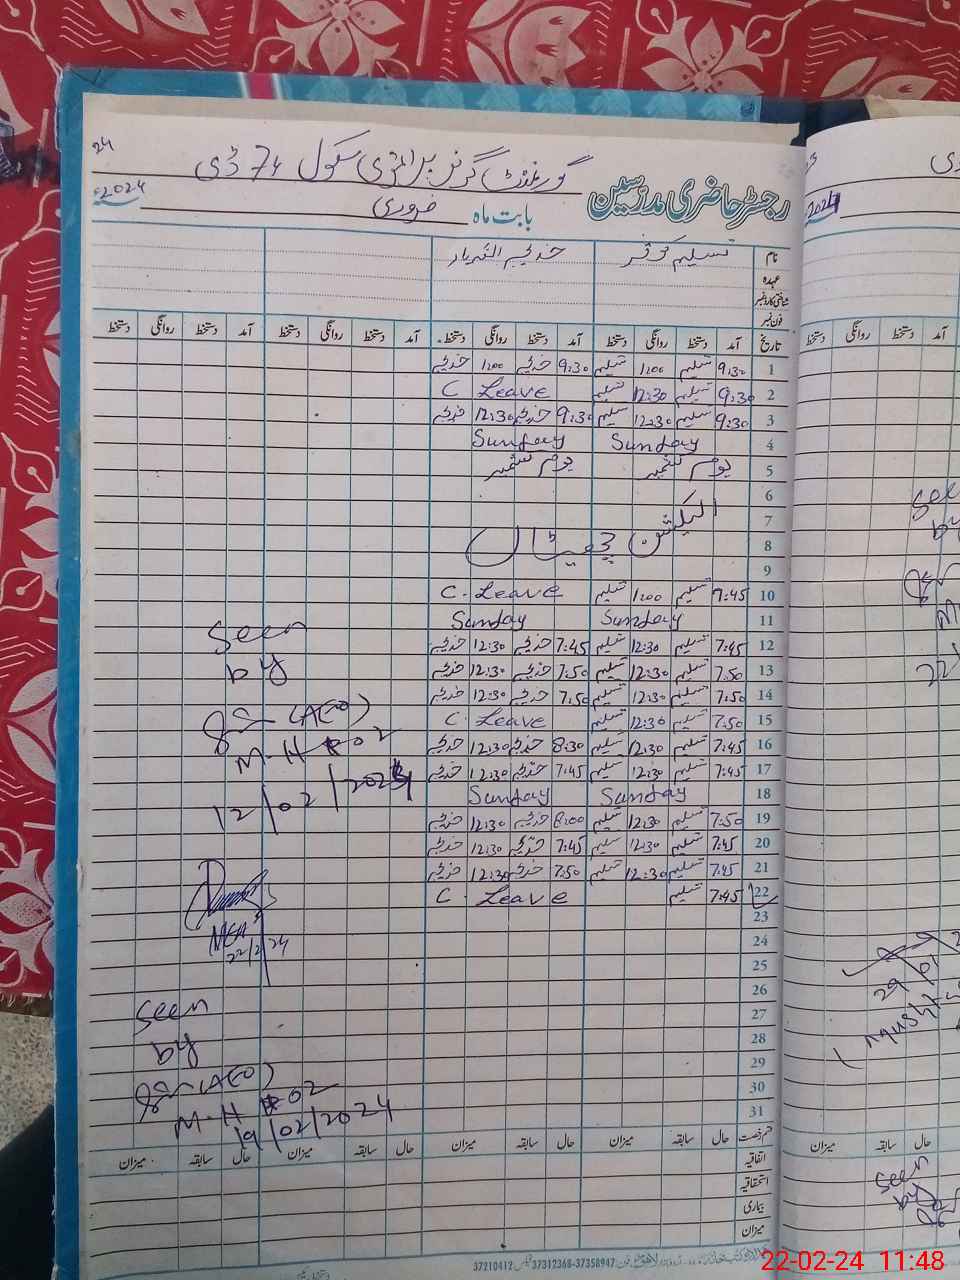 24
گورنمنٹ گرلز پرائمری سکول 74 ڈی
رجسٹر حاضری مدرسین
2024ء
بابت ماہ فروری
نام تسلیم کوثر خدیجہ اللہ یار
عہدہ
شناختی کارڈ نمبر
فون نمبر
تاریخ آمد دستخط روانگی دستخط آمد دستخط روانگی دستخط آمد دستخط روانگی دستخط آمد دستخط روانگی دستخط
1 9:30 تسلیم 1:00 تسلیم 9:30 خدیجہ 1:00 خدیجہ
2 9:30 تسلیم 12:30 تسلیم C Leave
3 9:30 تسلیم 12:30 تسلیم 9:30 خدیجہ 12:30 خدیجہ
4 Sunday Sunday
5 یوم کشمیر یوم کشمیر
6
7 الیکشن
8
9
10 7:45 تسلیم 1:00 تسلیم C. Leave
11 Sunday Sunday
12 7:45 تسلیم 12:30 تسلیم 7:45 خدیجہ 12:30 خدیجہ
13 7:50 تسلیم 12:30 تسلیم 7:50 خدیجہ 12:30 خدیجہ
14 7:50 تسلیم 12:30 تسلیم 7:50 خدیجہ 12:30 خدیجہ
15 7:50 تسلیم 12:30 تسلیم C. Leave
16 7:45 تسلیم 12:30 تسلیم 8:30 خدیجہ 12:30 خدیجہ
17 7:45 تسلیم 12:30 تسلیم 7:45 خدیجہ 12:30 خدیجہ
18 Sunday Sunday
19 7:50 تسلیم 12:30 تسلیم 8:00 خدیجہ 12:30 خدیجہ
20 7:45 تسلیم 12:30 تسلیم 7:45 خدیجہ 12:30 خدیجہ
21 7:45 تسلیم 12:30 تسلیم 7:50 خدیجہ 12:30 خدیجہ
22 7:45 تسلیم C. Leave
23
24
25
26
27
28
29
30
31
Seen
by
(AEO)
M-H 02
12/02/2024
22/2/24
Seen
by
(AEO)
M-H 02
19/02/2024
قسم رخصت حال سابقہ میزان حال سابقہ میزان حال سابقہ میزان حال سابقہ میزان
اتفاقیہ
استحقاقیہ
بیماری
میزان
37210412 فیکس 37312368-37358947 فون
2024
دستخط روانگی دستخط آمد
Seen
by
22
29
01
میزان سابقہ حال
Seen
by
22-02-24 11:48